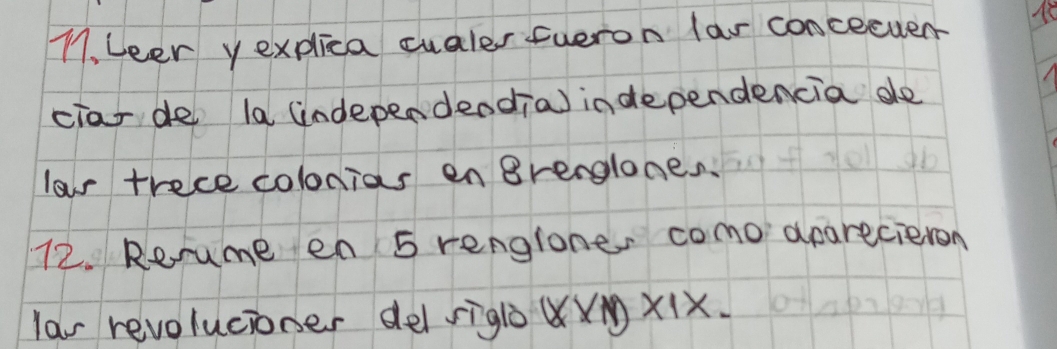 11. Leer y explica cuales fueron las concecuen
cias de la (independendia) independencia de
las trece colonias en 8 renglones.
12. Resume en 5 renglones como aparecieron
las revoluciones del siglo (XVII) XIX.